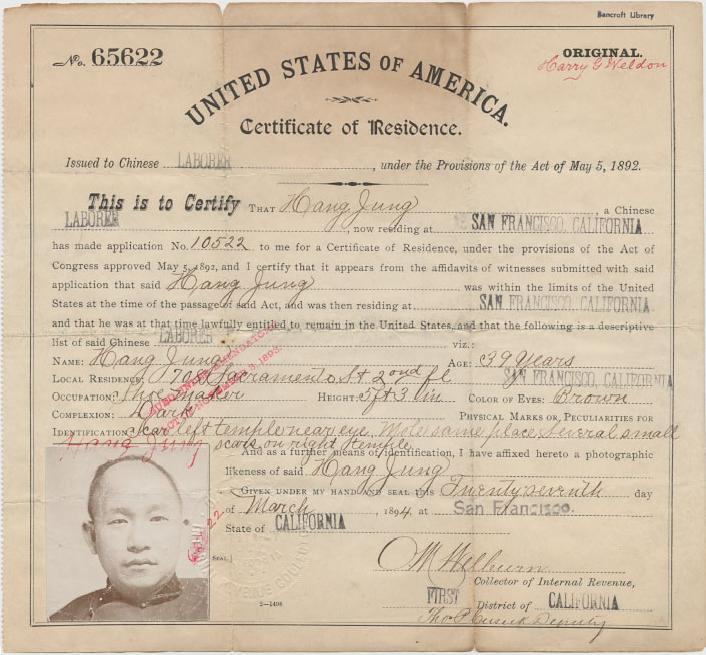 Bancroft Library
No. 65622
ORIGINAL.
Harry G Weldon
UNITED STATES OF AMERICA.
Certificate of Residence.
Issued to Chinese LABORER, under the Provisions of the Act of May 5, 1892.
This is to Certify THAT Hang Jung a Chinese
LABORER, now residing at SAN FRANCISCO, CALIFORNIA
has made application No. 10522 to me for a Certificate of Residence, under the provisions of the Act of
Congress approved May 5, 1892, and I certify that it appears from the affidavits of witnesses submitted with said
application that said Hang Jung was within the limits of the United
States at the time of the passage of said Act, and was then residing at SAN FRANCISCO, CALIFORNIA
and that he was at that time lawfully entitled to remain in the United States, and that the following is a descriptive
list of said Chinese LABORER viz.:
NAME: Hang Jung AGE: 39 Years
LOCAL RESIDENCE: Sacramento St 2ond fl SAN FRANCISCO, CALIFORNIA
OCCUPATION: Shoe maker HEIGHT: 5 ft 3 in COLOR OF EYES: Brown
COMPLEXION: Dark PHYSICAL MARKS OR PECULIARITIES FOR
IDENTIFICATION: Scar left temple near eye. Mole same place. Several small
scars on right temple
ISSUED UNDER AMENDATORY
ACT OF NOVEMBER 3, 1893.
Hang Jung
And as a further means of identification, I have affixed hereto a photographic
likeness of said Hang Jung
GIVEN UNDER MY HAND AND SEAL this Twenty seventh day
of March, 1894, at San Francisco.
State of CALIFORNIA
SEAL.
M Welburn
Collector of Internal Revenue,
FIRST District of CALIFORNIA
2—1498
Deputy